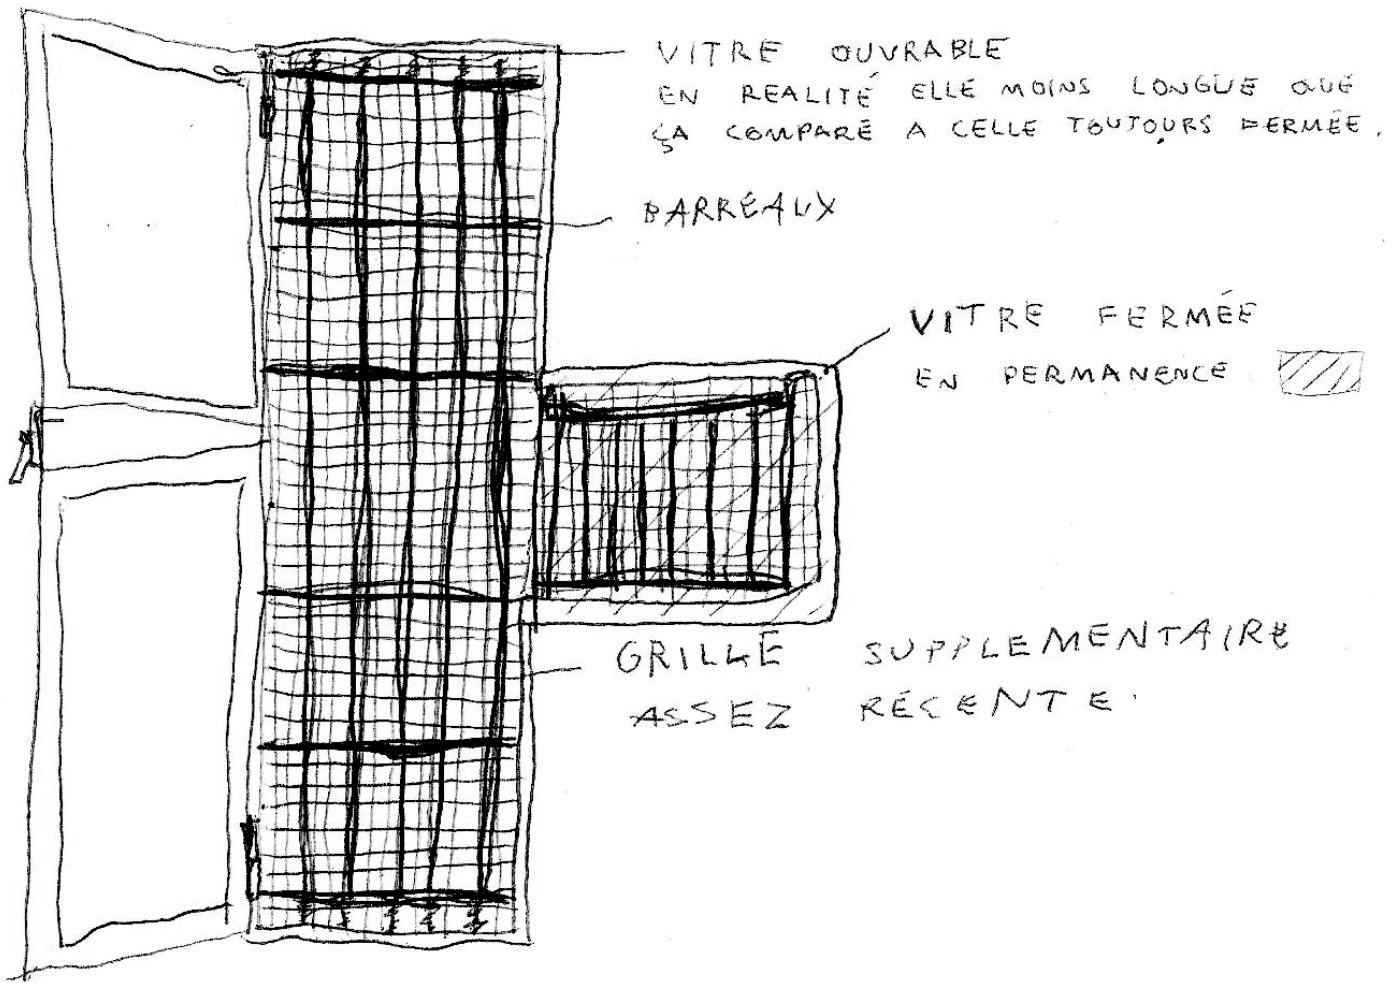 VITRE OUVRABLE
EN REALITÉ ELLE MOINS LONGUE QUE
ÇA COMPARÉ A CELLE TOUJOURS FERMÉE.
BARREAUX
VITRE FERMÉE
EN PERMANENCE
GRILLE SUPPLEMENTAIRE
ASSEZ RÉCENTE.